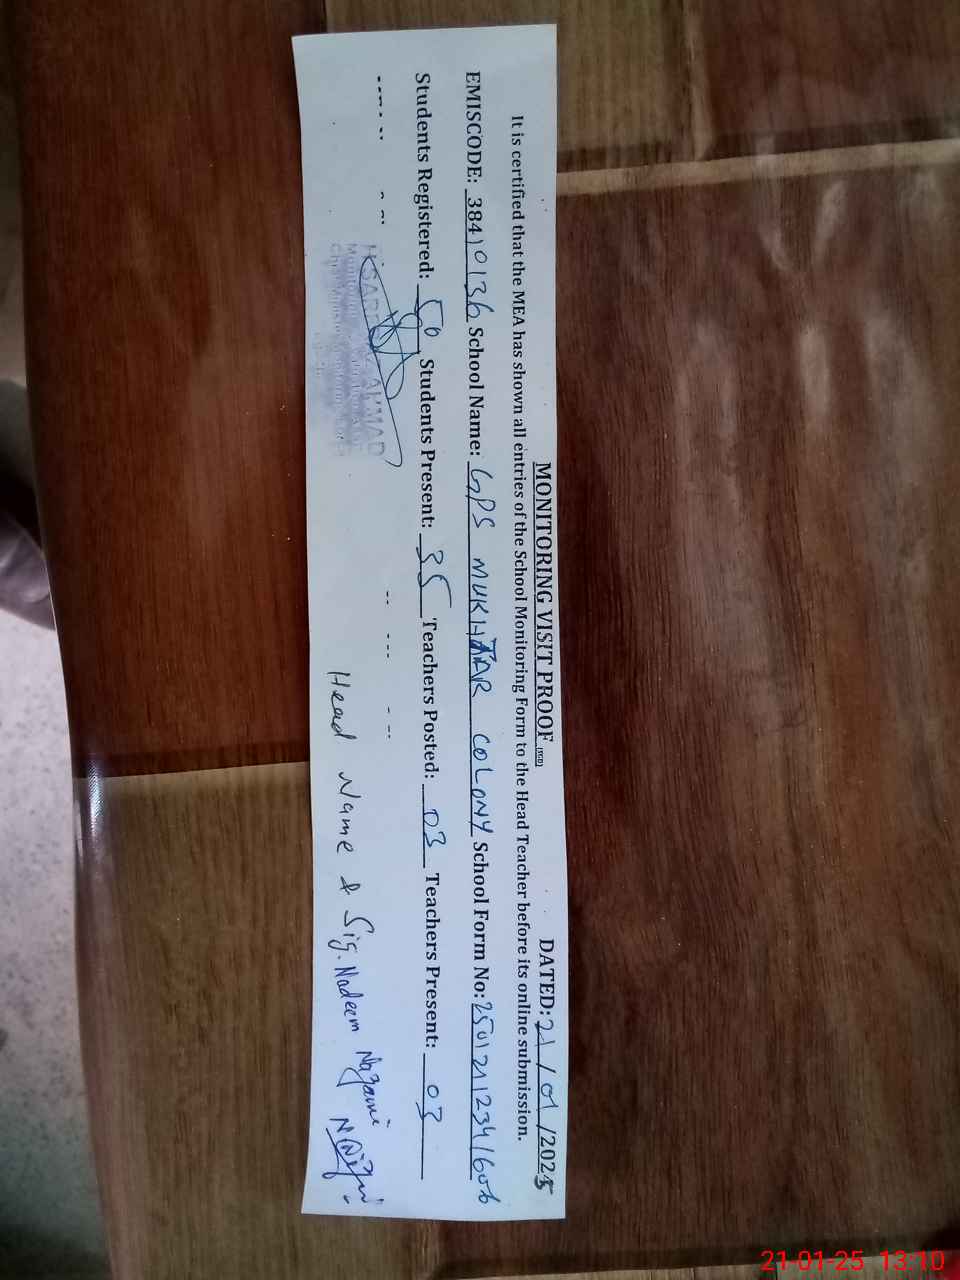 MONITORING VISIT PROOF (YCD) DATED: 21/01/2025
It is certified that the MEA has shown all entries of the School Monitoring Form to the Head Teacher before its online submission.
EMISCODE: 38410136 School Name: GPS MUKHTAR COLONY School Form No: 25012112341606
Students Registered: 50 Students Present: 35 Teachers Posted: 03 Teachers Present: 03
AHMAD
Head Name & Sig. Nadeem Nazami
21-01-25 13:10